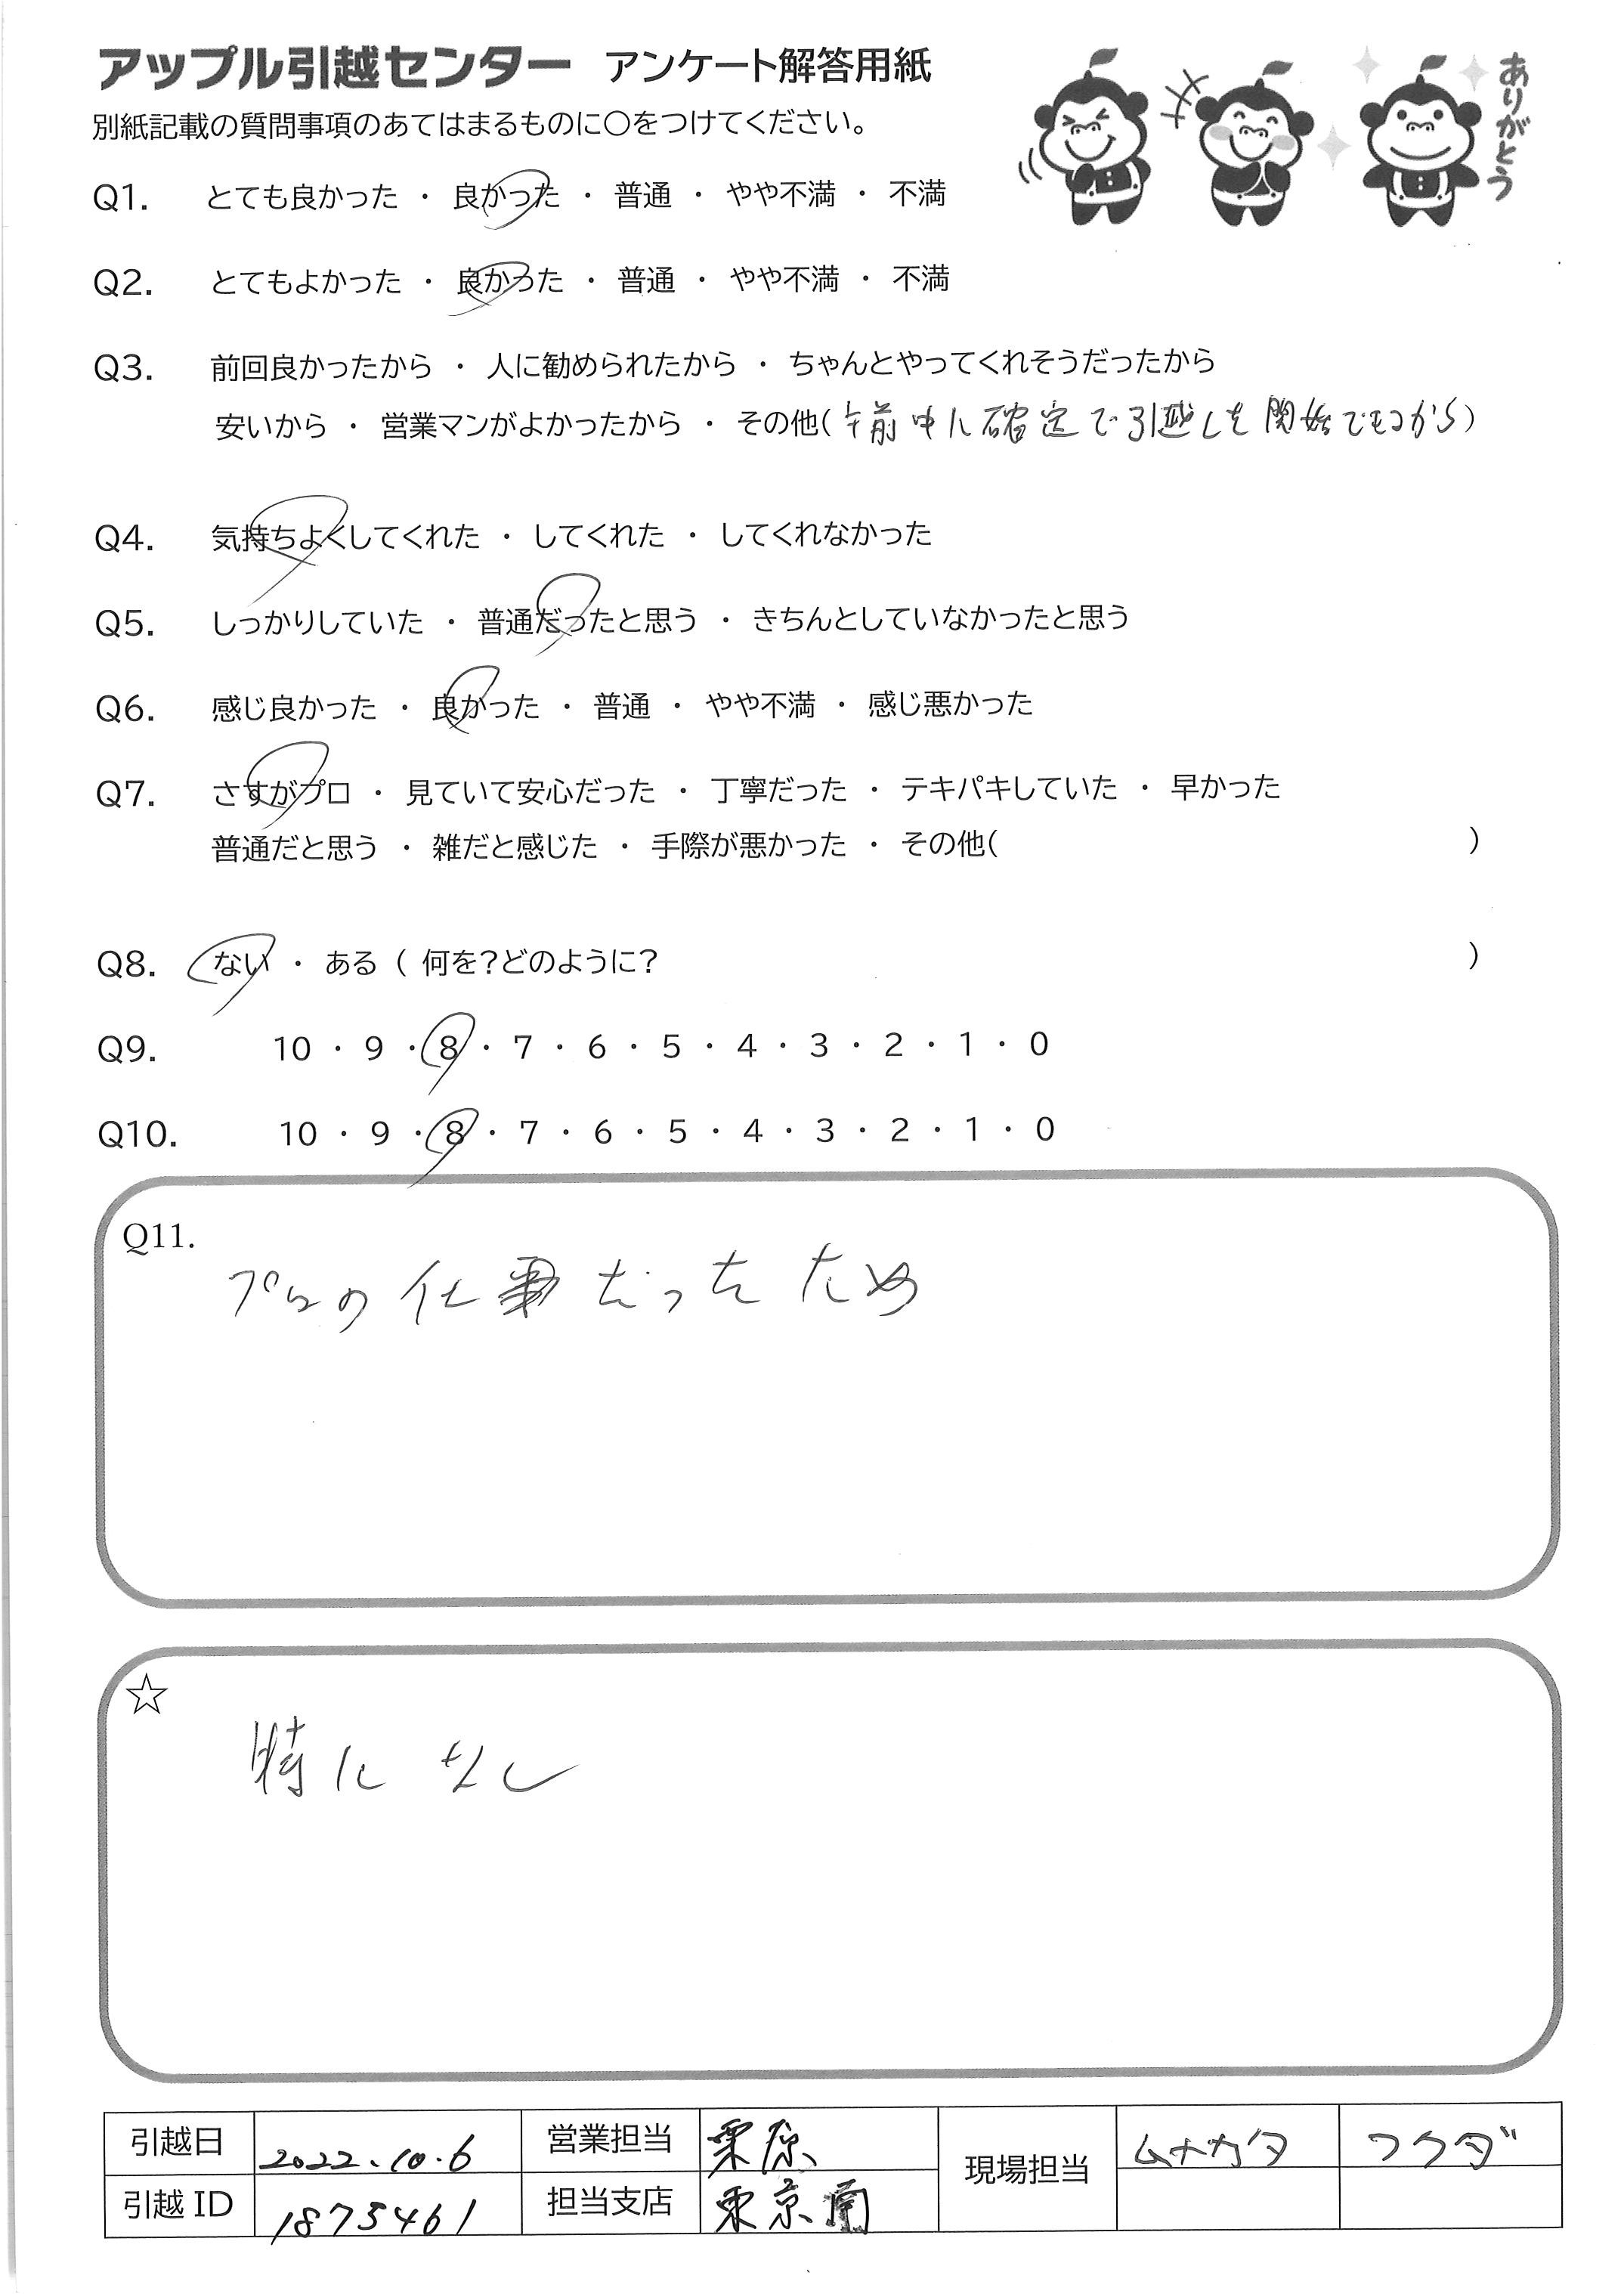 アップル引越センター アンケート解答用紙
ありがとう
別紙記載の質問事項のあてはまるものに〇をつけてください。
Q1. とても良かった ・ 良かった ・ 普通 ・ やや不満 ・ 不満
Q2. とてもよかった ・ 良かった ・ 普通 ・ やや不満 ・ 不満
Q3. 前回良かったから ・ 人に勧められたから ・ ちゃんとやってくれそうだったから
安いから ・ 営業マンがよかったから ・ その他(午前中に確定で引越しを開始できるから)
Q4. 気持ちよくしてくれた ・ してくれた ・ してくれなかった
Q5. しっかりしていた ・ 普通だったと思う ・ きちんとしていなかったと思う
Q6. 感じ良かった ・ 良かった ・ 普通 ・ やや不満 ・ 感じ悪かった
Q7. さすがプロ ・ 見ていて安心だった ・ 丁寧だった ・ テキパキしていた ・ 早かった
普通だと思う ・ 雑だと感じた ・ 手際が悪かった ・ その他( )
Q8. ない ・ ある ( 何を?どのように? )
Q9. 10 ・ 9 ・ 8 ・ 7 ・ 6 ・ 5 ・ 4 ・ 3 ・ 2 ・ 1 ・ 0
Q10. 10 ・ 9 ・ 8 ・ 7 ・ 6 ・ 5 ・ 4 ・ 3 ・ 2 ・ 1 ・ 0
Q11.
プロの仕事だったため
☆
特になし
引越日 2022.10.6 営業担当 栗原 現場担当 ムナカタ フクダ
引越ID 1875461 担当支店 東京南